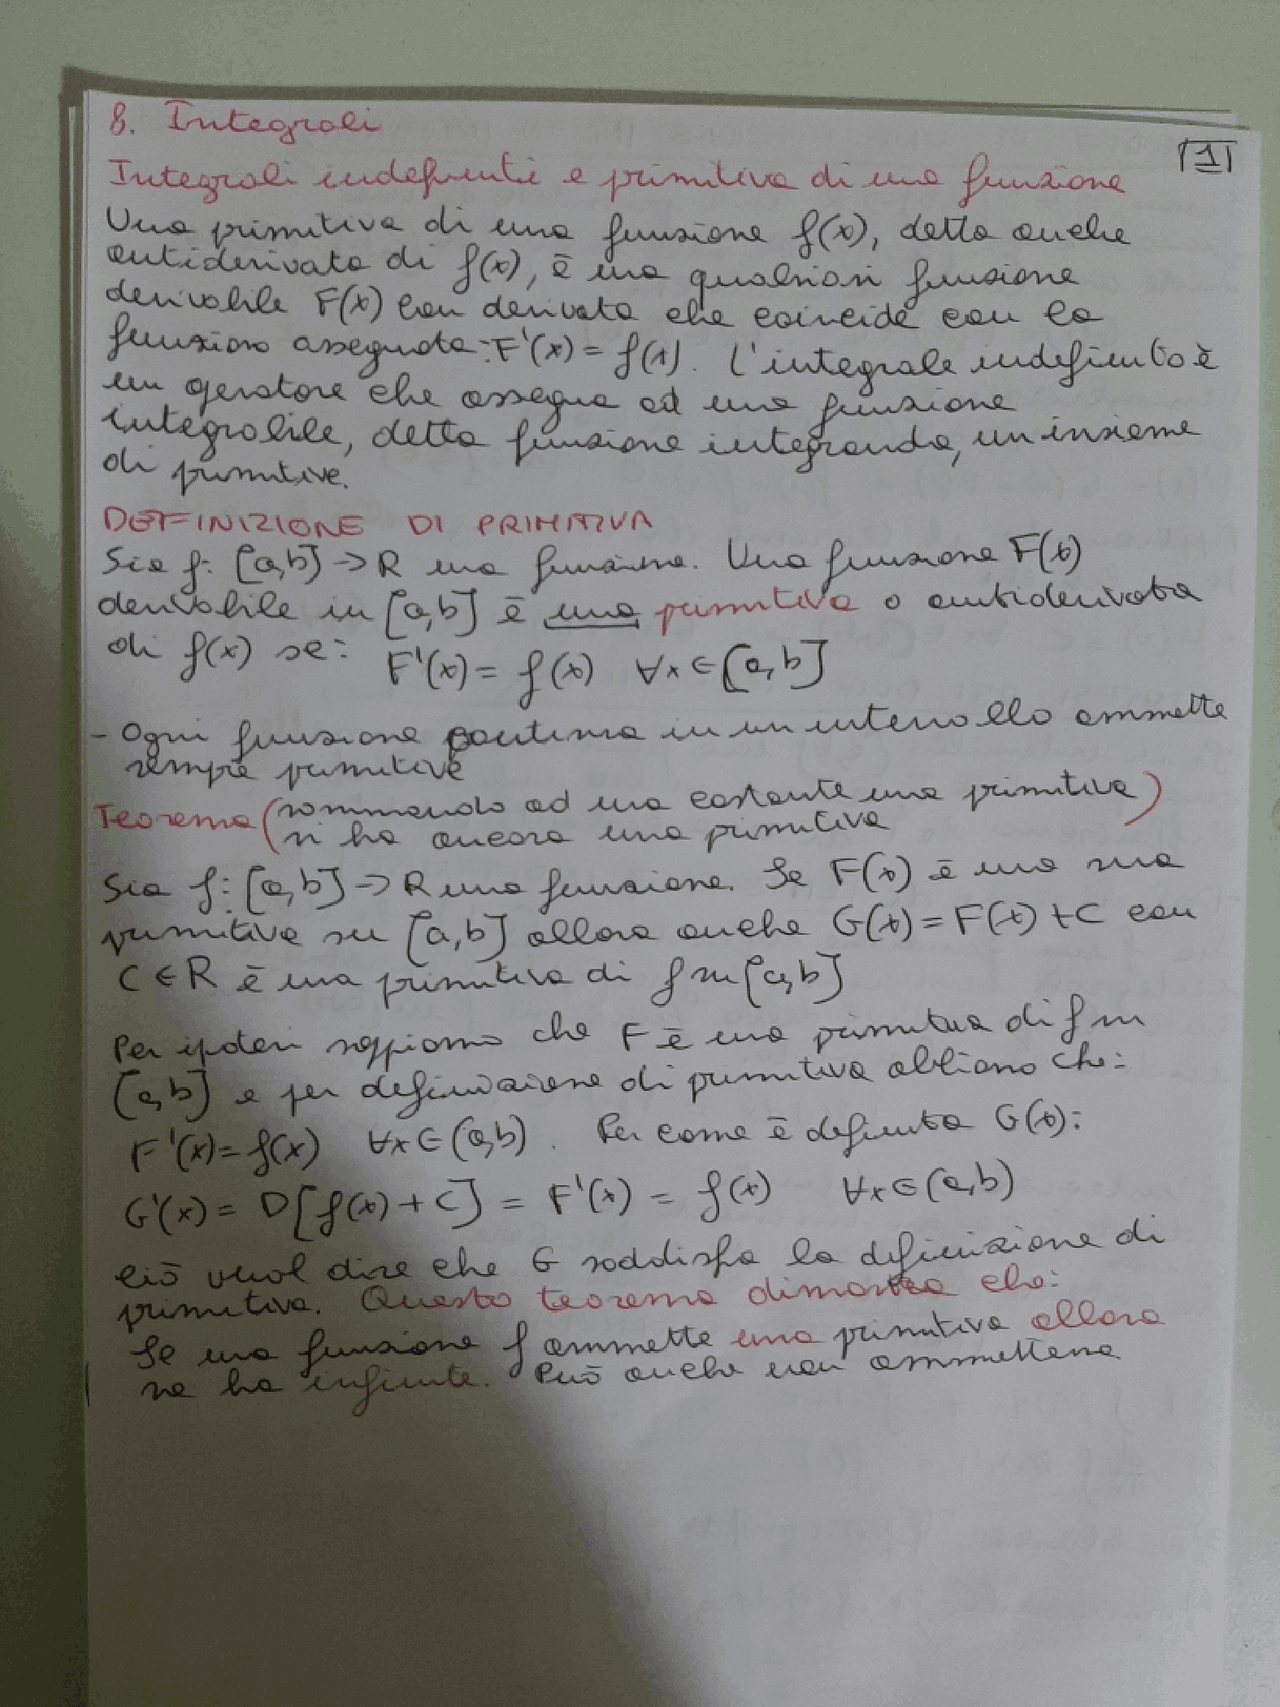 8. Integrali
[1]
Integrali indefiniti e primitiva di una funzione
Una primitiva di una funzione f(x), detta anche
antiderivata di f(x), è una qualsiasi funzione
derivabile F(x) con derivata che coincide con la
funzione assegnata: F'(x) = f(x). L'integrale indefinito è
un operatore che assegna ad una funzione
integrabile, detta funzione integranda, un insieme
di primitive.
DEFINIZIONE DI PRIMITIVA
Sia f: [a,b] -> R una funzione. Una funzione F(x)
derivabile in [a,b] è una primitiva o antiderivata
di f(x) se: F'(x) = f(x) ∀x ∈ [a,b]
- Ogni funzione continua in un intervallo ammette
sempre primitive
Teorema (sommando ad una costante una primitiva
si ha ancora una primitiva)
Sia f: [a,b] -> R una funzione. Se F(x) è una sua
primitiva su [a,b] allora anche G(x) = F(x) + C con
C ∈ R è una primitiva di f su [a,b]
Per ipotesi sappiamo che F è una primitiva di f su
[a,b] e per definizione di primitiva abbiamo che:
F'(x) = f(x) ∀x ∈ (a,b). Per come è definita G(x):
G'(x) = D[f(x) + C] = F'(x) = f(x) ∀x ∈ (a,b)
Ciò vuol dire che G soddisfa la definizione di
primitiva. Questo teorema dimostra che:
Se una funzione f ammette una primitiva allora
ne ha infinite. Può anche non ammetterne.